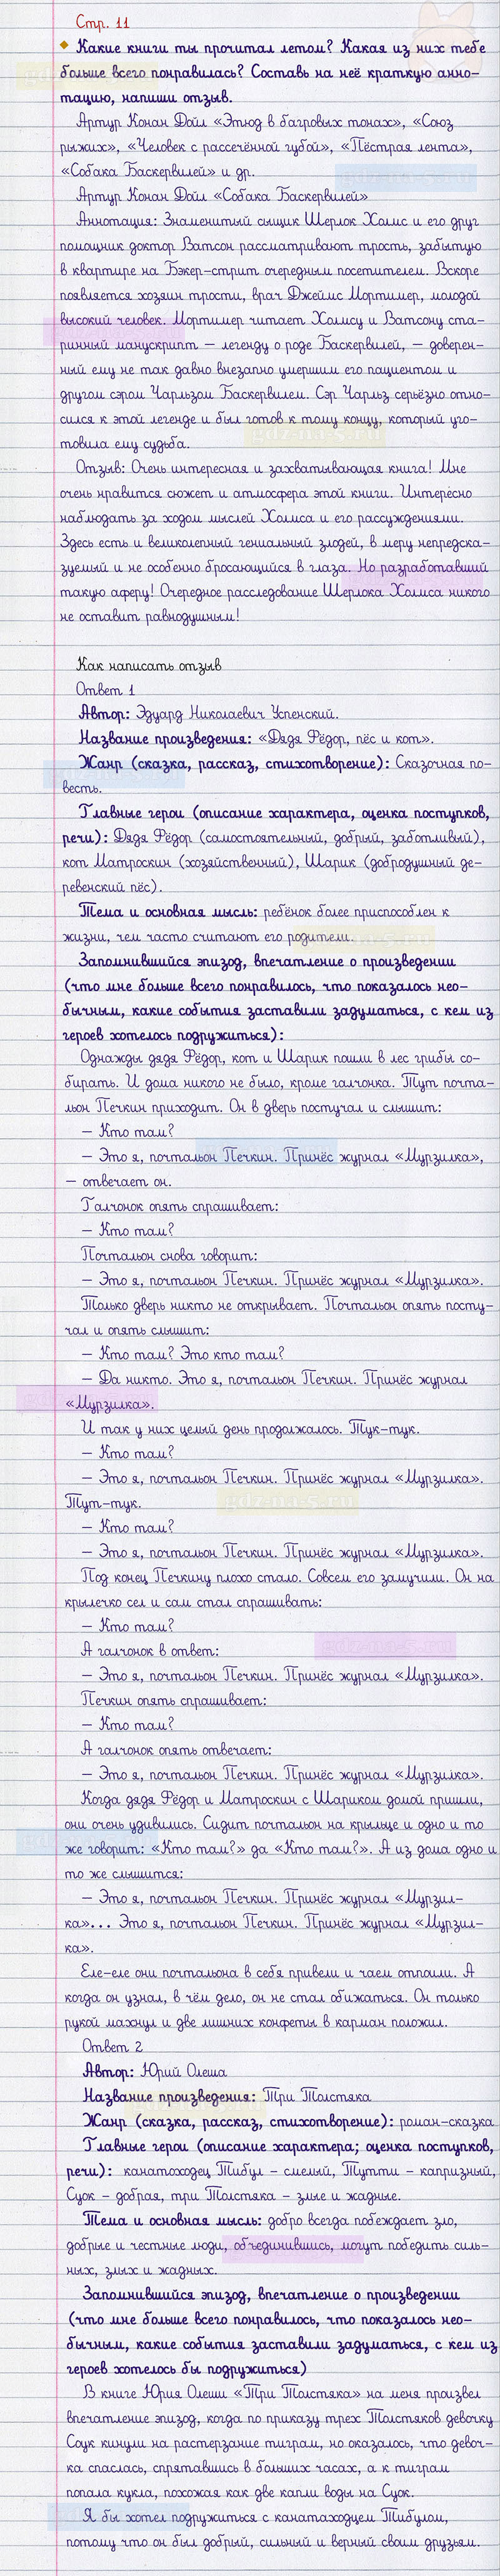 Стр. 11
Какие книги ты прочитал летом? Какая из них тебе
больше всего понравилась? Составь на неё краткую анно-
тацию, напиши отзыв.
Артур Конан Дойл «Этюд в багровых тонах», «Союз
рыжих», «Человек с рассечённой губой», «Пёстрая лента»,
«Собака Баскервилей» и др.
Артур Конан Дойл «Собака Баскервилей»
Аннотация: Знаменитый сыщик Шерлок Холмс и его друг
помощник доктор Ватсон рассматривают трость, забытую
в квартире на Бэкер-стрит очередным посетителем. Вскоре
появляется хозяин трости, врач Джеймс Мортимер, молодой
высокий человек. Мортимер читает Холмсу и Ватсону ста-
ринный манускрипт – легенду о роде Баскервилей, – доверен-
ный ему не так давно внезапно умершим его пациентом и
другом сэром Чарльзом Баскервилем. Сэр Чарльз серьёзно отно-
сился к этой легенде и был готов к тому концу, который уго-
товила ему судьба.
gdz-na-5.ru
Отзыв: Очень интересная и захватывающая книга! Мне
очень нравится сюжет и атмосфера этой книги. Интересно
наблюдать за ходом мыслей Холмса и его рассуждениями.
Здесь есть и великолепный гениальный злодей, в меру непредска-
зуемый и не особенно бросающийся в глаза. Но разработавший
такую аферу! Очередное расследование Шерлока Холмса никого
не оставит равнодушным!
Как написать отзыв
Ответ 1
Автор: Эдуард Николаевич Успенский.
Название произведения: «Дядя Фёдор, пёс и кот».
Жанр (сказка, рассказ, стихотворение): Сказочная по-
весть.
Главные герои (описание характера, оценка поступков,
речи): Дядя Фёдор (самостоятельный, добрый, заботливый),
кот Матроскин (хозяйственный), Шарик (добродушный де-
ревенский пёс).
Тема и основная мысль: ребёнок более приспособлен к
жизни, чем часто считают его родители.
Запомнившийся эпизод, впечатление о произведении
(что мне больше всего понравилось, что показалось нео-
бычным, какие события заставили задуматься, с кем из
героев хотелось подружиться):
Однажды дядя Фёдор, кот и Шарик пошли в лес грибы со-
бирать. И дома никого не было, кроме галчонка. Тут почта-
льон Печкин приходит. Он в дверь постучал и слышит:
– Кто там?
– Это я, почтальон Печкин. Принёс журнал «Мурзилка»,
– отвечает он.
Галчонок опять спрашивает:
– Кто там?
Почтальон снова говорит:
– Это я, почтальон Печкин. Принёс журнал «Мурзилка».
Только дверь никто не открывает. Почтальон опять посту-
чал и опять слышит:
– Кто там? Это кто там?
– Да никто. Это я, почтальон Печкин. Принёс журнал
«Мурзилка».
И так у них целый день продолжалось. Тук-тук.
– Кто там?
– Это я, почтальон Печкин. Принёс журнал «Мурзилка».
Тут-тук.
gdz-na-5.ru
– Кто там?
– Это я, почтальон Печкин. Принёс журнал «Мурзилка».
Под конец Печкину плохо стало. Совсем его замучили. Он на
крылечко сел и сам стал спрашивать:
– Кто там?
А галчонок в ответ:
– Это я, почтальон Печкин. Принёс журнал «Мурзилка».
Печкин опять спрашивает:
– Кто там?
А галчонок опять отвечает:
– Это я, почтальон Печкин. Принёс журнал «Мурзилка».
Когда дядя Фёдор и Матроскин с Шариком домой пришли,
они очень удивились. Сидит почтальон на крыльце и одно и то
же говорит: «Кто там?» да «Кто там?». А из дома одно и
то же слышится:
– Это я, почтальон Печкин. Принёс журнал «Мурзил-
ка»... Это я, почтальон Печкин. Принёс журнал «Мурзил-
ка».
Еле-еле они почтальона в себя привели и чаем отпоили. А
когда он узнал, в чём дело, он не стал обижаться. Он только
рукой махнул и две лишних конфеты в карман положил.
Ответ 2
Автор: Юрий Олеша
Название произведения: Три Толстяка
Жанр (сказка, рассказ, стихотворение): роман-сказка
Главные герои (описание характера; оценка поступков,
речи): канатоходец Тибул – смелый, Тутти – капризный,
Суок – добрая, три Толстяка – злые и жадные.
Тема и основная мысль: добро всегда побеждает зло,
добрые и честные люди, объединившись, могут победить силь-
ных, злых и жадных.
Запомнившийся эпизод, впечатление о произведении
(что мне больше всего понравилось, что показалось нео-
бычным, какие события заставили задуматься, с кем из
героев хотелось бы подружиться)
В книге Юрия Олеши «Три Толстяка» на меня произвел
впечатление эпизод, когда по приказу трех Толстяков девочку
Соук кинули на растерзание тиграм, но оказалось, что девоч-
ка спаслась, спрятавшись в больших часах, а к тиграм
попала кукла, похожая как две капли воды на Суок.
Я бы хотел подружиться с канатоходцем Тибулом,
потому что он был добрый, сильный и верный своим друзьям.